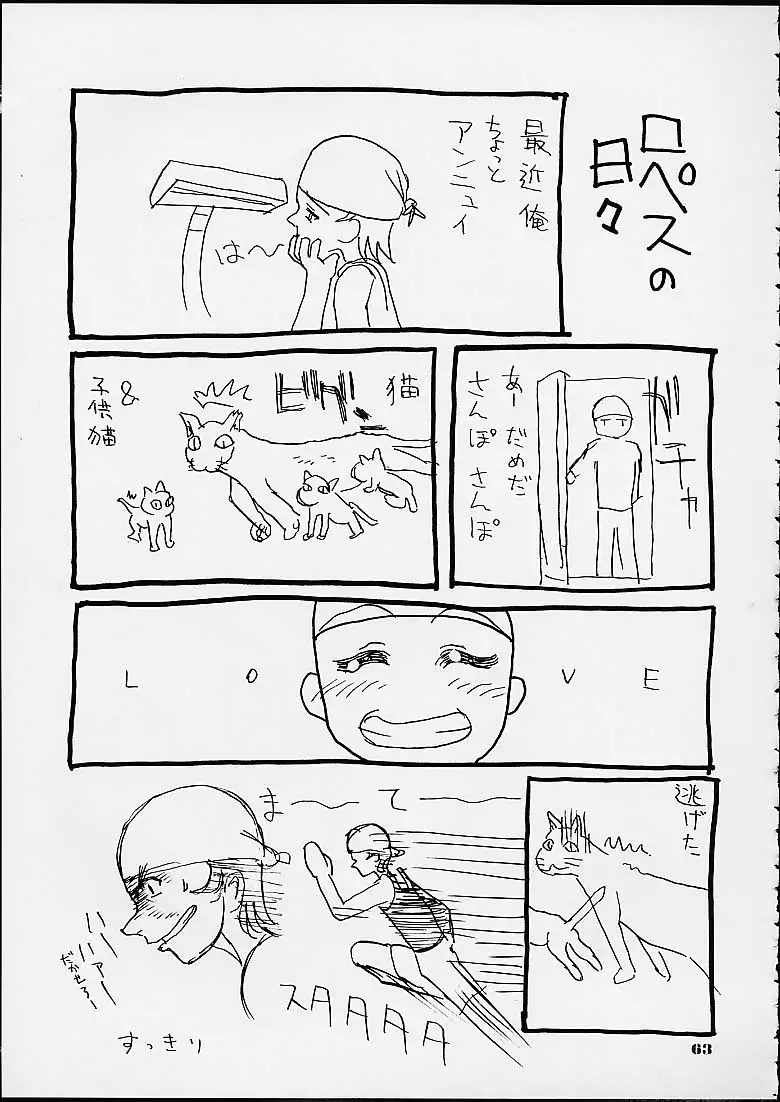 ロペスの
日々
最近俺
ちょっと
アンニュイ
は〜
ガチャ
あーだめだ
さんぽさんぽ
猫
ビグッ
&
子供猫
LOVE
逃げた
まーてー
スタタタタ
ハァハァー
だかせろー
すっきり
63